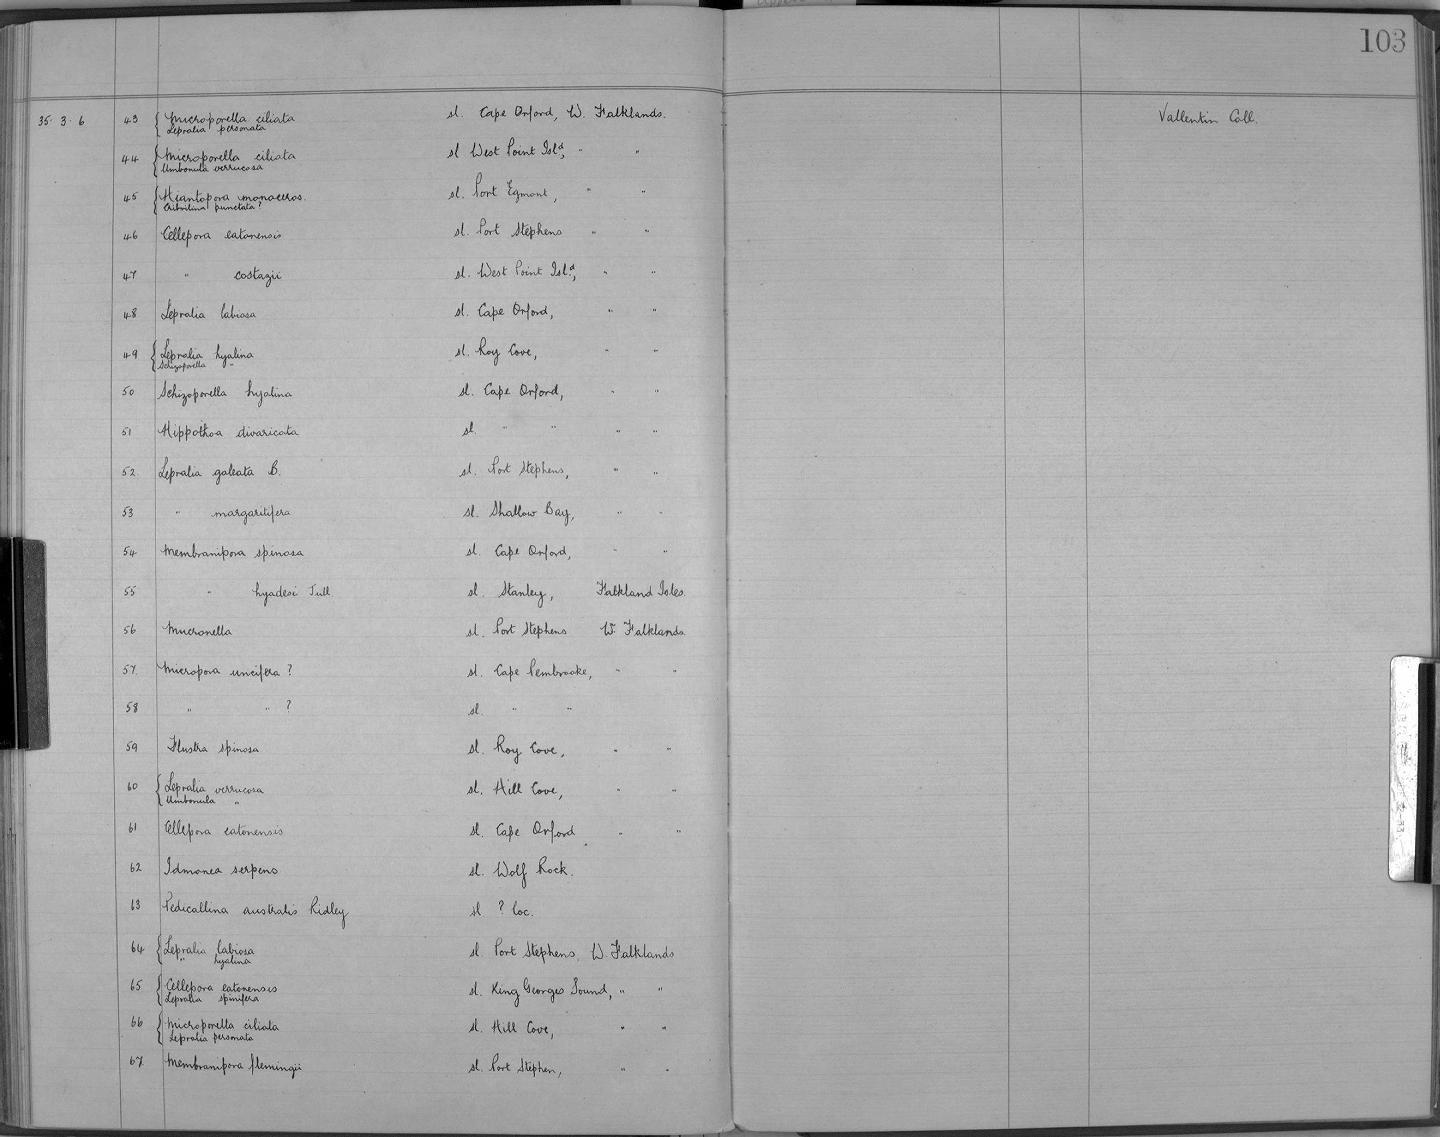 103
35. 3. 6 43 { Microporella ciliata sl. Cape Orford, W. Falklands. Vallentin Coll.
Lepralia personata
44 { Microporella ciliata sl West Point Isl^d, " "
Umbonula verrucosa
45 { Hiantopora monoceros. sl. Port Egmont, " "
Cribrilina punctata?
46 Cellepora eatonensis sl. Port Stephens " "
47 " costazii sl. West Point Isl^d, " "
48 Lepralia labiosa sl. Cape Orford, " "
49 { Lepralia hyalina sl. Roy Cove, " "
Schizoporella "
50 Schizoporella hyalina sl. Cape Orford, " "
51 Hippothoa divaricata sl. " " " "
52. Lepralia galeata B. sl. Port Stephens, " "
53 " margaritifera sl. Shallow Bay, " "
54 Membranipora spinosa sl. Cape Orford, " "
55 " hyadesi Jull sl. Stanley, Falkland Isles.
56 Mucronella sl. Port Stephens W. Falklands
57. Micropora uncifera ? sl. Cape Pembrooke, " "
58 " " ? sl. " "
59 Flustra spinosa sl. Roy Cove, " "
60 { Lepralia verrucosa sl. Hill Cove, " "
Umbonula "
61 Cellepora eatonensis sl. Cape Orford " "
62 Idmonea serpens sl. Wolf Rock.
63 Pedicallina australis Ridley sl ? loc.
64 { Lepralia labiosa sl Port Stephens, W. Falklands
" hyalina
65 { Cellepora eatonensis sl. King Georges Sound, " "
Lepralia spinifera
66 { Microporella ciliata sl. Hill Cove, " "
Lepralia personata
67. Membranipora flemingii sl. Port Stephen, " "